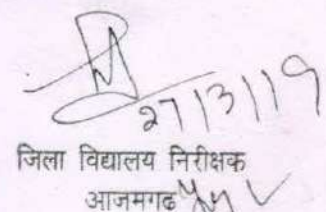 27/3/19
जिला विद्यालय निरीक्षक
आजमगढ